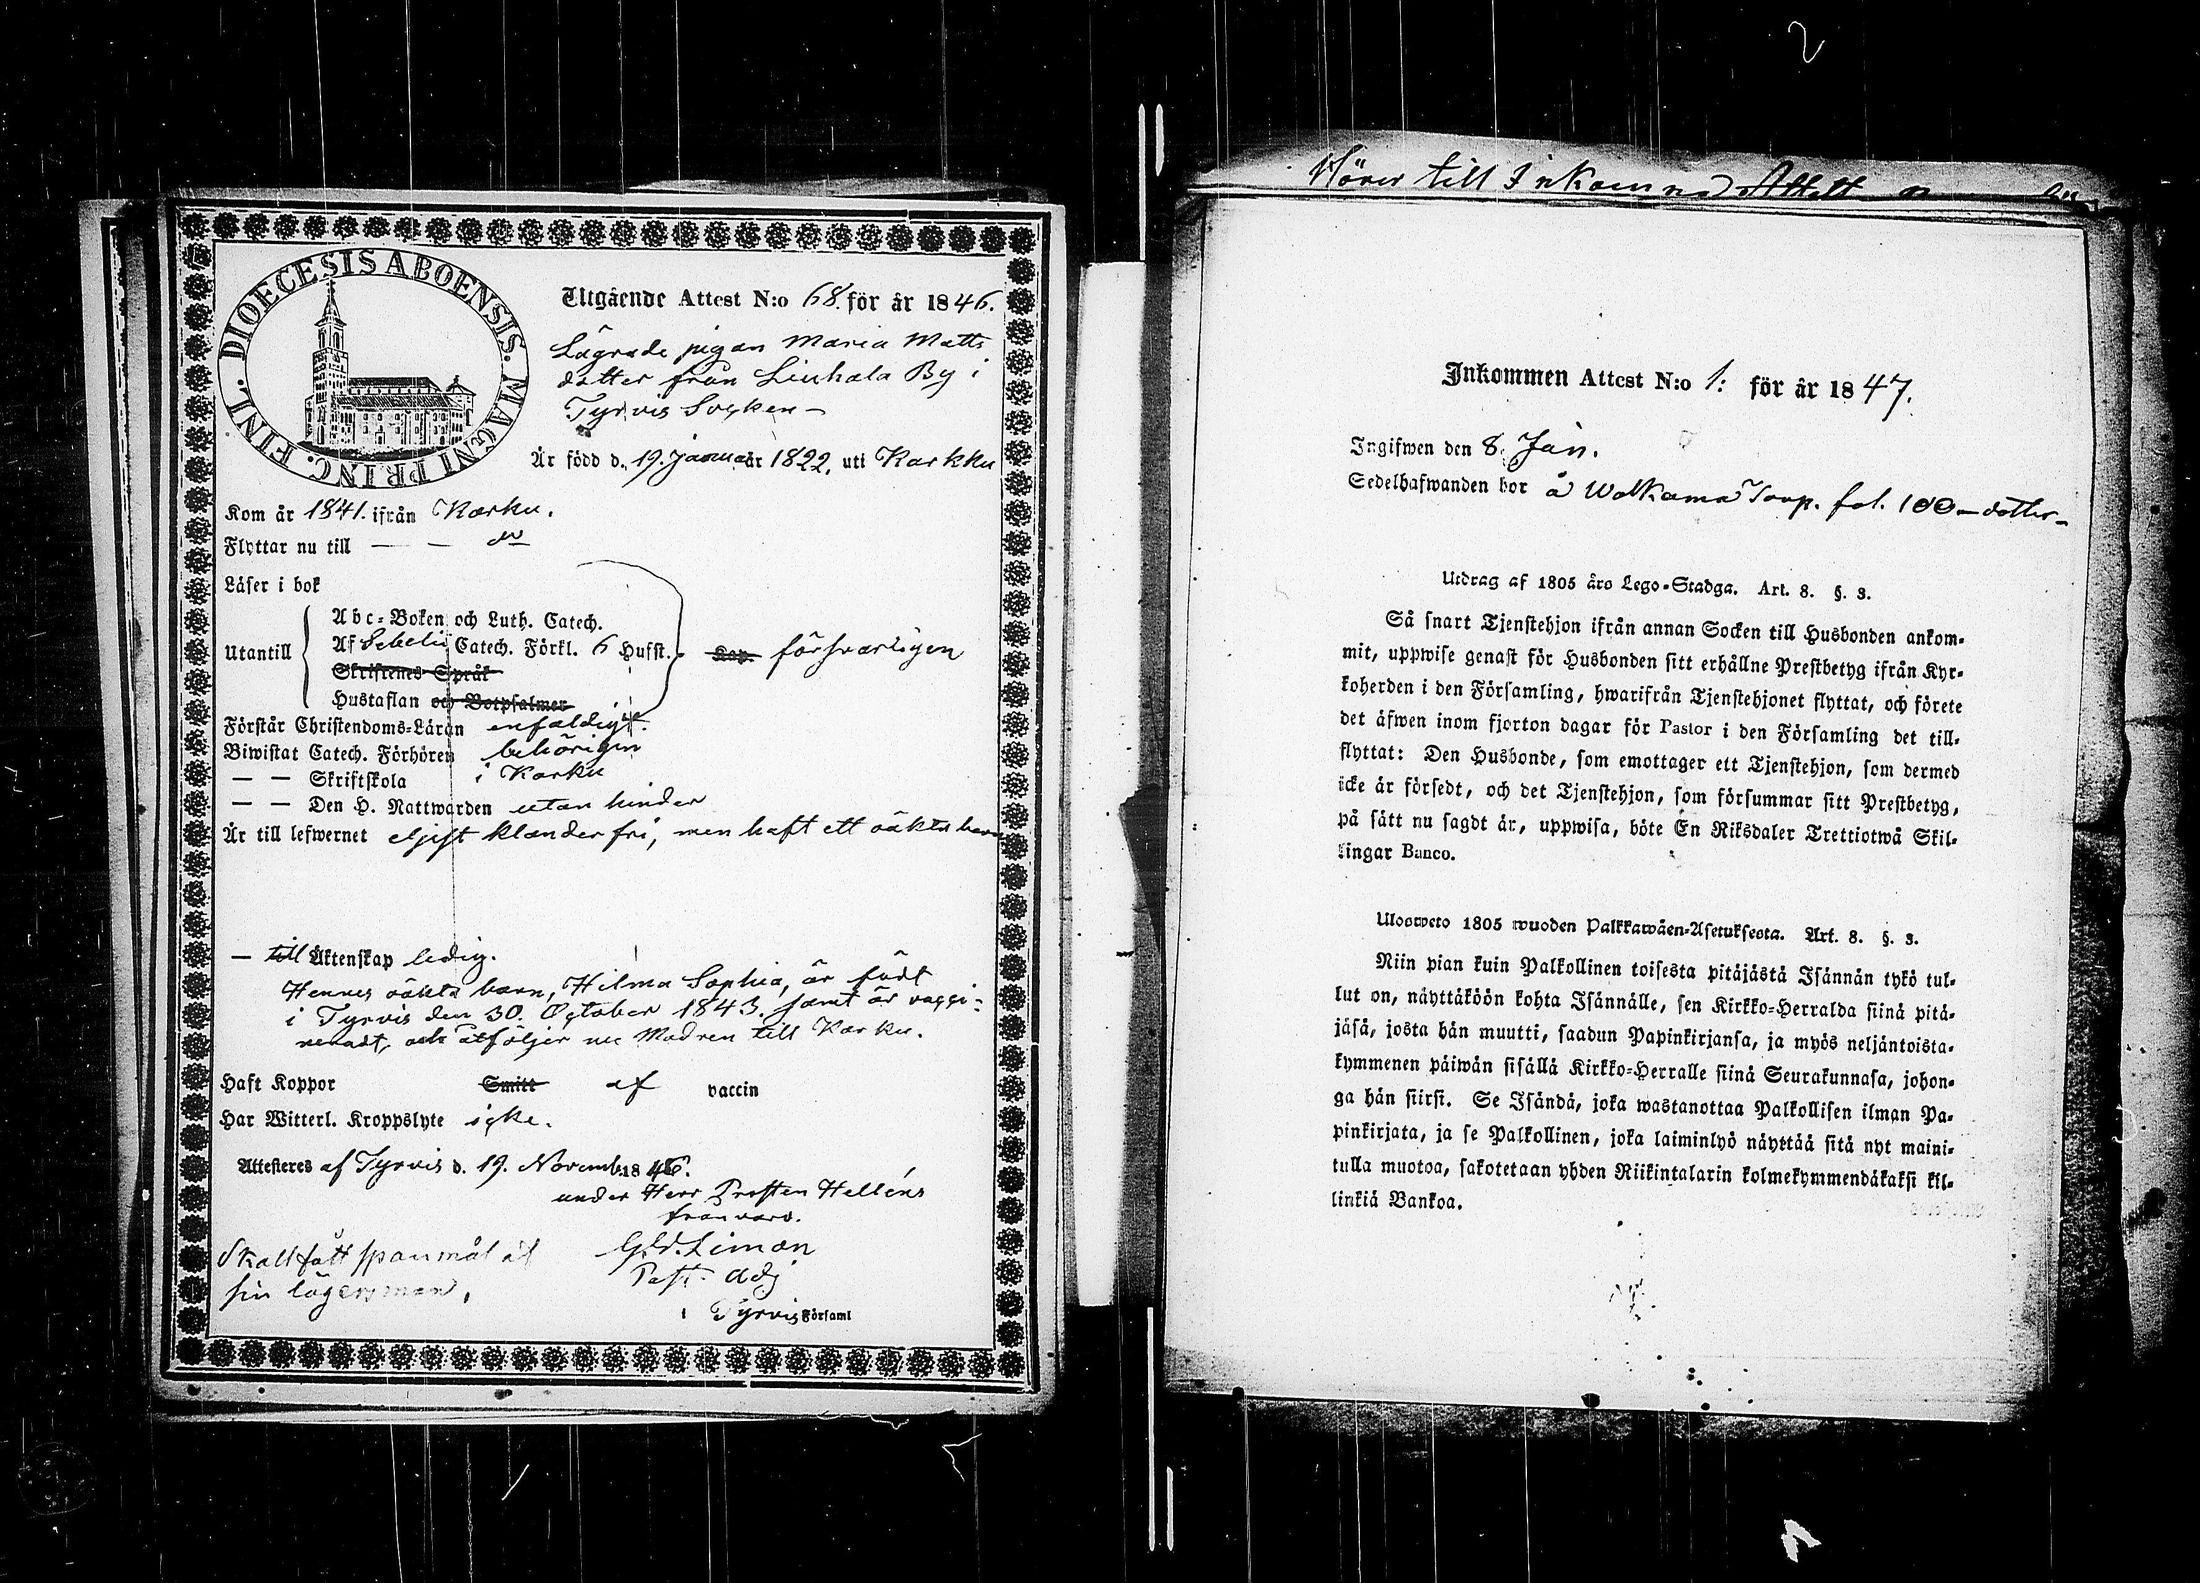 DIOECESIS ABOENSIS. MAGNI PRINC. FINL.
Utgående Attest N:o 68. för år 1846.
Lägrade pigan Maria Matts
dotter från Liuhala By i
Tyrvis Socken –
Är född d. 19. Januar år 1822, uti Karkku
Kom år 1841. ifrån Karku.
Flyttar nu till — — do
Läser i bok
Utantill
Abc-Boken och Luth. Catech.
Af Sebelii Catech. Förkl. 6 Hufst. Kap. försvarligen
Skriftenes Språk
Hustaflan och Botpsalmer
Förstår Christendoms-Läran enfaldigt.
Biwistat Catech. Förhören behörigen
— — Skriftskola i Karku
— — Den H. Nattwarden utan hinder
Är till lefwernet eljest klanderfri, men haft ett oäkta barn
— till Äktenskap ledig.
Hennes oäkta barn, Hilma Sophia, är födt
i Tyrvis den 30. October 1843. samt är vacci-
neradt, och åtföljer nu Modren till Karku.
Haft Koppor Smitt af vaccin
Har Witterl. Kroppslyte icke.
Attesteres af Tyrvis d. 19. Novemb. 1846.
under Herr Prosten Helléns
frånvaro.
Skall fått spanmål af
sin lägersman,
Limon
Past. Adj
i Tyrvis Församl
2
Hörer till Inkomna Attest
Inkommen Attest N:o 1: för år 1847.
Ingifwen den 8. Jan.
Sedelhafwanden bor å Walkama Torp. fol. 100 – dotter –
Utdrag af 1805 års Lego-Stadga. Art. 8. §. 3.
Så snart Tjenstehjon ifrån annan Socken till Husbonden ankom-
mit, uppwise genast för Husbonden sitt erhållne Prestbetyg ifrån Kyr-
koherden i den Församling, hwarifrån Tjenstehjonet flyttat, och förete
det äfwen inom fjorton dagar för Pastor i den Församling det till-
flyttat: Den Husbonde, som emottager ett Tjenstehjon, som dermed
icke är försedt, och det Tjenstehjon, som försummar sitt Prestbetyg,
på sätt nu sagdt är, uppwisa, böte En Riksdaler Trettiotwå Skil-
lingar Banco.
Ulosweto 1805 wuoden Palkkawäen-Asetuksesta. Art. 8. §. 3.
Niin pian kuin Palkollinen toisesta pitäjästä Isännän tykö tul-
lut on, näyttäköön kohta Isännälle, sen Kirkko-Herralda siinä pitä-
jäsä, josta hän muutti, saadun Papinkirjansa, ja myös neljäntoista-
kymmenen päiwän sisällä Kirkko-Herralle siinä Seurakunnasa, johon-
ga hän siirsi. Se Isändä, joka wastanottaa Palkollisen ilman Pa-
pinkirjata, ja se Palkollinen, joka laiminlyö näyttää sitä nyt maini-
tulla muotoa, sakotetaan yhden Riikintalarin kolmekymmendäkaksi kil-
linkiä Bankoa.